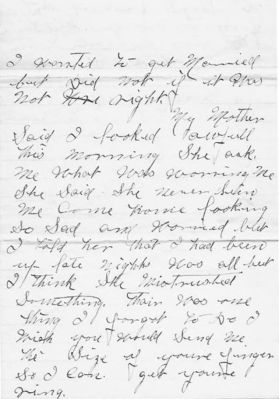 I wanted to get Married
but did not if it was
not right
My Mother
Said I looked awfull
this morning She ask
me What Was worring Me
She Said She never seen
me Come home looking
So Sad and Worried but
I told her that I had been
up late nights Was all but
I think She Mistrusted
Something, Thair Was one
thing I forgot to do I
wish you would Send Me
the Size of youre finger
So I Can get youre
ring.